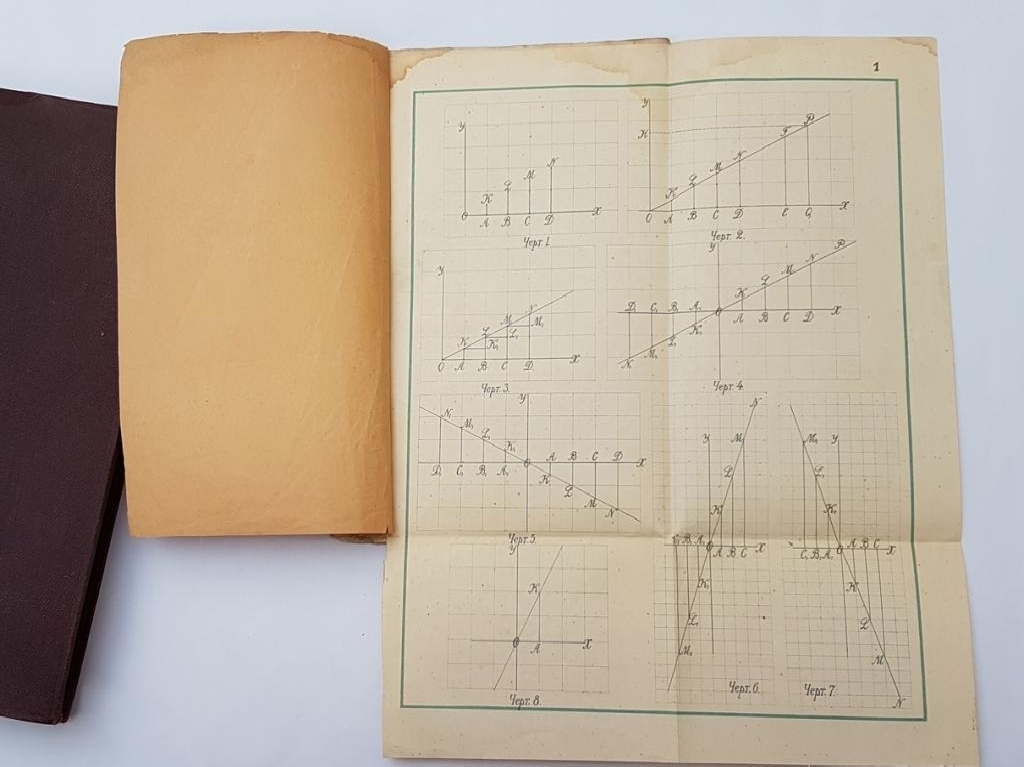 1
У
K L M N
O A B C D X
Черт. 1.
У
K T P
K L M N
O A B C D E G X
Черт. 2.
У
K L M M₁ N
K₁ L₁
O A B C D X
Черт. 3.
У
K L M N P
D₁ C₁ B₁ A₁ O A B C D X
N₁ M₁ L₁ K₁
Черт. 4.
У
N₁ M₁ L₁ K₁
D₁ C₁ B₁ A₁ O A B C D X
K L M N
Черт. 5.
N
У M
L
K
C₁ B₁ A₁ O A B C X
K₁
L₁
M₁
Черт. 6.
M₁ У
L₁
K₁
C₁ B₁ A₁ O A B C X
K
L
M
N
Черт. 7.
У
K
O A X
Черт. 8.